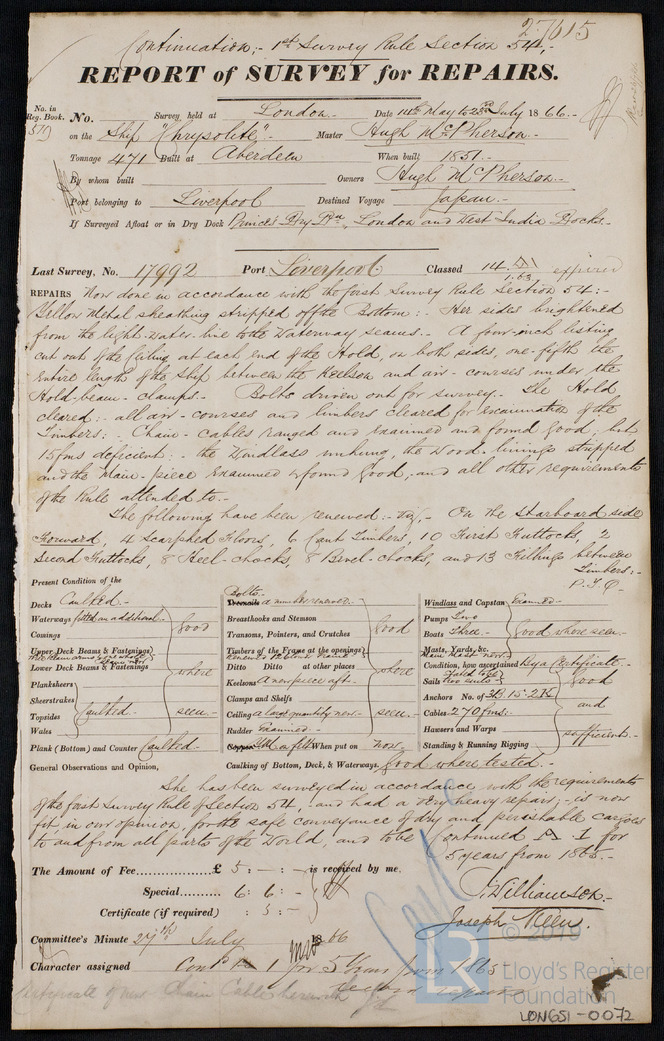 27615
Continuation:- 1st Survey Rule Section 54.-
REPORT of SURVEY for REPAIRS.
No. in Reg. Book. No. Survey held at London.- Date 14th May to 23rd July 1866.-
571 on the Ship "Chrysolite".- Master Hugh McPherson.-
Tonnage 471 Built at Aberdeen When built 1851.-
By whom built Owners Hugh McPherson.-
Port belonging to Liverpool Destined Voyage Japan.-
If Surveyed Afloat or in Dry Dock Prince's Dry Dn, London and West India Docks.-
Last Survey, No. 17992 Port Liverpool Classed 14. A1 1.63 expired
REPAIRS Now done in accordance with the first Survey Rule Section 54:-
Yellow Metal sheathing stripped off the Bottom:- Her sides brightened
from the light-water-line to the Waterway seams.- A four-inch listing
cut out of the Ceiling at each end of the Hold, on both sides, one-fifth the
Entire length of the Ship between the Keelson and air-courses under the
Hold-beam-clamps.- Bolts driven out for survey.- The Hold
cleared:- all air-courses and limbers cleared for examination of the
Timbers:- Chain-cables ranged and examined and found good; but
15 fms deficient:- the Windlass unhung, the Wood-linings stripped
and the Main-piece Examined & found good,- and all other requirements
of the Rule attended to.-
The following have been renewed:- viz,- On the Starboard side
Forward, 4 Scarphed Floors, 6 Cant Timbers, 10 First Futtocks, 2
Second Futtocks, 8 Heel-chocks, 8 Bevel-chocks, and 13 Fillings between
Timbers:-
P.T.O.-
Present Condition of the
Decks Caulked.-
Waterways fitted an additional.-
Comings
Upper Deck Beams & Fastenings
Lower Deck Beams & Fastenings
Planksheers
Sheerstrakes
Topsides Caulked.-
Wales
good where seen.-
Plank (Bottom) and Counter Caulked.-
Bolts.-
Treenails a number renewed.-
Breasthooks and Stemson
Transoms, Pointers, and Crutches
Timbers of the Frame at the openings
Ditto Ditto at other places
Keelsons a new piece aft.-
Clamps and Shelfs
Ceiling a large quantity new.-
Rudder Examined.-
good where seen.-
Copper YM & felt When put on now.-
Caulking of Bottom, Deck, & Waterways. Good where tested.-
Windlass and Capstan Examined.-
Pumps Two
Boats Three.-
Masts, Yards, &c.
Main Mast new.
good where seen.-
Condition, how ascertained By a Certificate.-
Sails two suits
Anchors No. of 3B. 1S. 2K
Cables 270 fms:-
Hawsers and Warps
Standing & Running Rigging
good and sufficient.-
General Observations and Opinion,
She has been surveyed in accordance with the requirements
of the first Survey Rule of Section 54, and had a very heavy repair;- is now
fit in our opinion, for the safe conveyance of dry and perishable cargoes
to and from all parts of the World, and to be Continued A. 1 for
5 years from 1865.-
The Amount of Fee......£ 5: -: - is received by me.
Special......... 6: 6: -
Certificate (if required) : 5: -
J. Williamson.
Joseph Steen.
Committee's Minute 27th July 1866
Character assigned Contd A 1 for 5 Years from 1865
Certificate of new Chain Cable herewith
© 2019
LR
Lloyd's Register
Foundation
LON651-0072